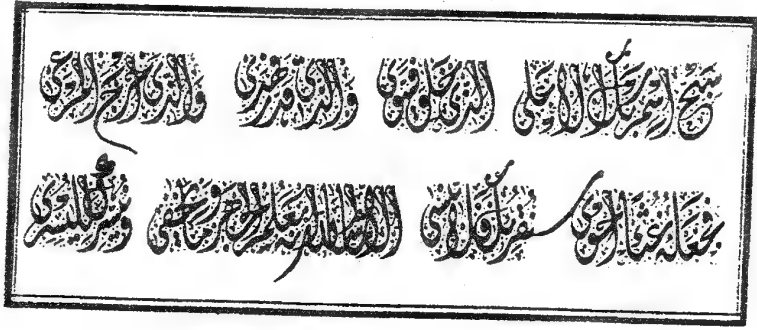 سبح اسم ربك الأعلى الذي خلق فسوى والذي قدر فهدى والذي أخرج المرعى
فجعله غثاء أحوى سنقرئك فلا تنسى إلا ما شاء الله إنه يعلم الجهر وما يخفى ونيسرك لليسرى